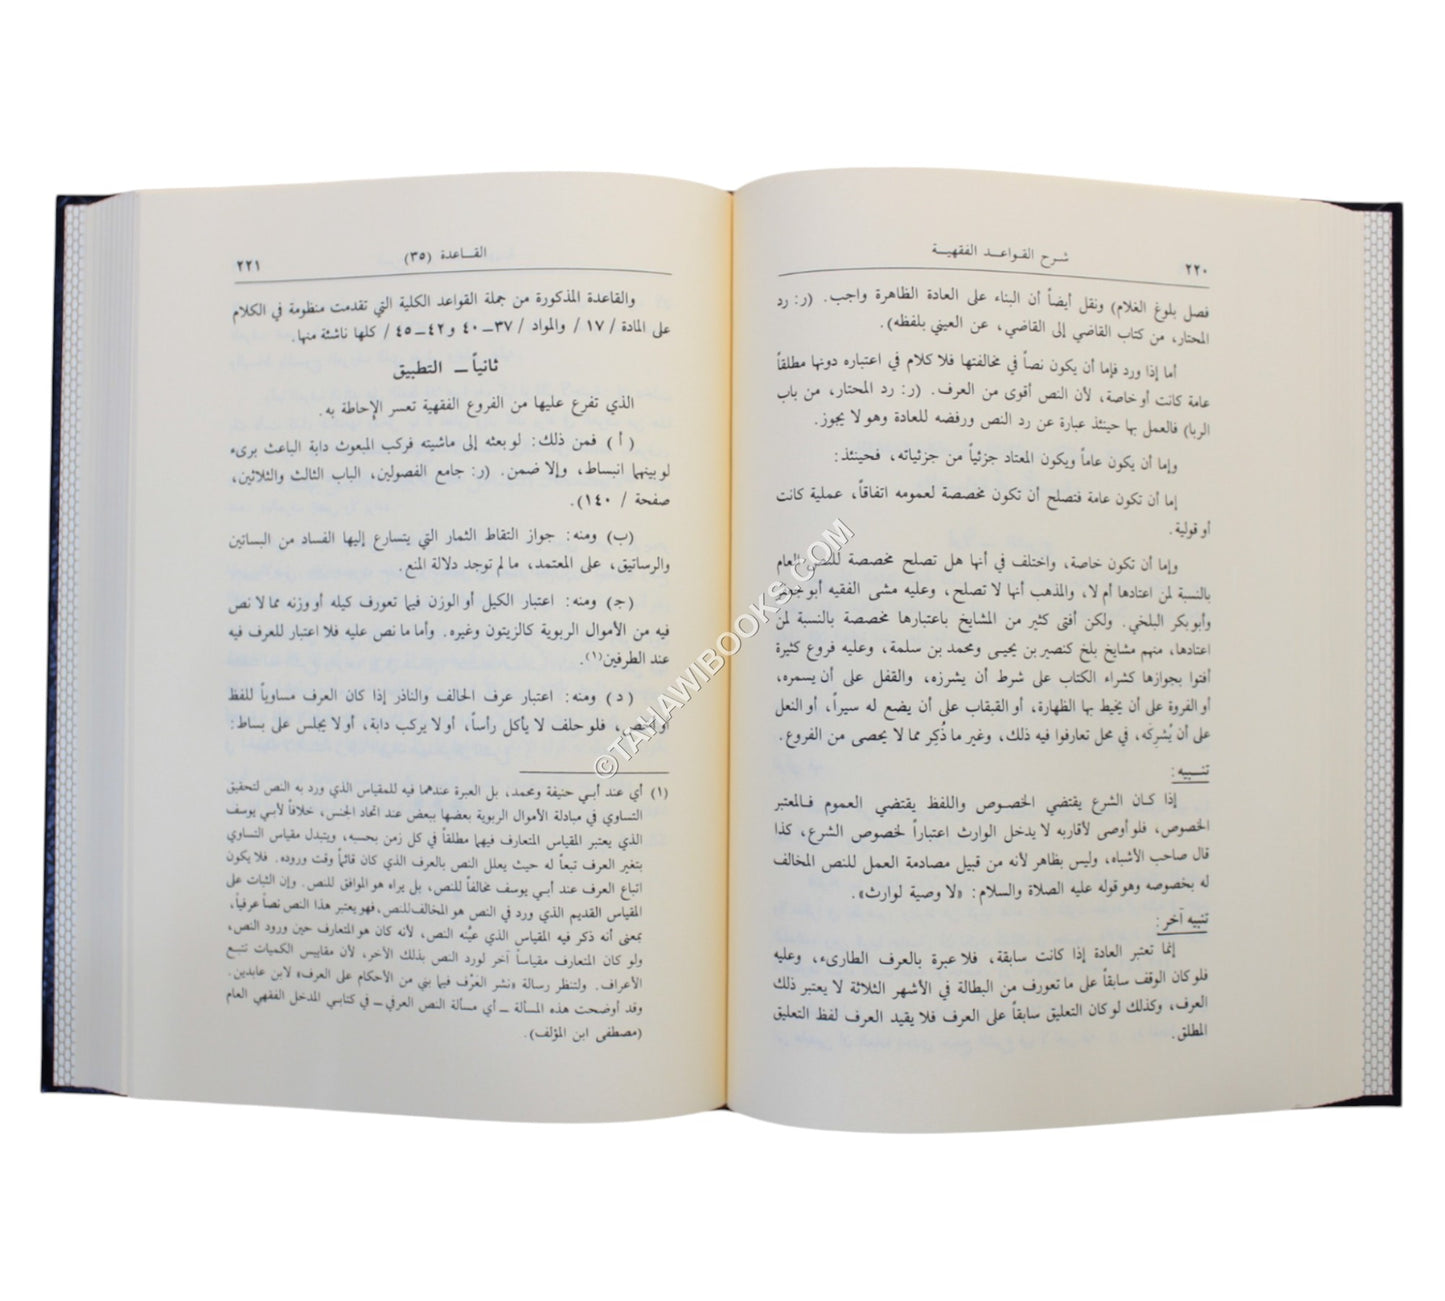 ٢٢٠
شرح القواعد الفقهية
فصل بلوغ الغلام) ونقل أيضاً أن البناء على العادة الظاهرة واجب. (ر: رد
المحتار، من كتاب القاضي إلى القاضي، عن العيني بلفظه).
أما إذا ورد فإما أن يكون نصاً في مخالفتها فلا كلام في اعتباره دونها مطلقاً
عامة كانت أو خاصة، لأن النص أقوى من العرف. (ر: رد المحتار، من باب
الربا) فالعمل بها حينئذ عبارة عن رد النص ورفضه للعادة وهو لا يجوز.
وإما أن يكون عاماً ويكون المعتاد جزئياً من جزئياته، فحينئذ:
إما أن تكون عامة فتصلح أن تكون مخصصة لعمومه اتفاقاً، عملية كانت
أو قولية.
وإما أن تكون خاصة، واختلف في أنها هل تصلح مخصصة للنص العام
بالنسبة لمن اعتادها أم لا، والمذهب أنها لا تصلح، وعليه مشى الفقيه أبو جعفر
وأبو بكر البلخي. ولكن أفتى كثير من المشايخ باعتبارها مخصصة بالنسبة لمن
اعتادها، منهم مشايخ بلخ كنصير بن يحيى ومحمد بن سلمة، وعليه فروع كثيرة
أفتوا بجوازها كشراء الكتاب على شرط أن يشرزه، والقفل على أن يسمره،
أو الفروة على أن يخيط بها الظهارة، أو القبقاب على أن يضع له سيراً، أو النعل
على أن يُشركَه، في محل تعارفوا فيه ذلك، وغير ما ذُكِر مما لا يحصى من الفروع.
تنبيه:
إذا كان الشرع يقتضي الخصوص واللفظ يقتضي العموم فالمعتبر
الخصوص، فلو أوصى لأقاربه لا يدخل الوارث اعتباراً لخصوص الشرع، كذا
قال صاحب الأشباه، وليس بظاهر لأنه من قبيل مصادمة العمل للنص المخالف
له بخصوصه وهو قوله عليه الصلاة والسلام: «لا وصية لوارث».
تنبيه آخر:
إنما تعتبر العادة إذا كانت سابقة، فلا عبرة بالعرف الطارىء، وعليه
فلو كان الوقف سابقاً على ما تعورف من البطالة في الأشهر الثلاثة لا يعتبر ذلك
العرف، وكذلك لو كان التعليق سابقاً على العرف فلا يقيد العرف لفظ التعليق
المطلق.
القاعدة (٣٥)
٢٢١
والقاعدة المذكورة من جملة القواعد الكلية التي تقدمت منظومة في الكلام
على المادة / ١٧ / والمواد / ٣٧ــ٤٠ و ٤٢ــ٤٥ / كلها ناشئة منها.
ثانياً ــ التطبيق
الذي تفرع عليها من الفروع الفقهية تعسر الإحاطة به.
(أ) فمن ذلك: لو بعثه إلى ماشيته فركب المبعوث دابة الباعث برىء
لو بينهما انبساط، وإلا ضمن. (ر: جامع الفصولين، الباب الثالث والثلاثين،
صفحة / ١٤٠).
(ب) ومنه: جواز التقاط الثمار التي يتسارع إليها الفساد من البساتين
والرساتيق، على المعتمد، ما لم توجد دلالة المنع.
(جـ) ومنه: اعتبار الكيل أو الوزن فيما تعورف كيله أو وزنه مما لا نص
فيه من الأموال الربوية كالزيتون وغيره. وأما ما نص عليه فلا اعتبار للعرف فيه
عند الطرفين(١).
(د) ومنه: اعتبار عرف الحالف والناذر إذا كان العرف مساوياً للفظ
أو أخص، فلو حلف لا يأكل رأساً، أو لا يركب دابة، أو لا يجلس على بساط:
(١) أي عند أبي حنيفة ومحمد، بل العبرة عندهما فيه للمقياس الذي ورد به النص لتحقيق
التساوي في مبادلة الأموال الربوية بعضها ببعض عند اتحاد الجنس، خلافاً لأبي يوسف
الذي يعتبر المقياس المتعارف فيهما مطلقاً في كل زمن بحسبه، ويتبدل مقياس التساوي
بتغير العرف تبعاً له حيث يعلل النص بالعرف الذي كان قائماً وقت وروده. فلا يكون
اتباع العرف عند أبي يوسف مخالفاً للنص، بل يراه هو الموافق للنص. وإن الثبات على
المقياس القديم الذي ورد في النص هو المخالف للنص، فهو يعتبر هذا النص نصاً عرفياً،
بمعنى أنه ذكر فيه المقياس الذي عيَّنه النص، لأنه كان هو المتعارف حين ورود النص،
ولو كان المتعارف مقياساً آخر لورد النص بذلك الآخر، لأن مقاييس الكميات تتبع
الأعراف. ولتنظر رسالة «نشر العَرْف فيما بني من الأحكام على العرف» لابن عابدين.
وقد أوضحت هذه المسألة ــ أي مسألة النص العرفي ــ في كتابي المدخل الفقهي العام
(مصطفى ابن المؤلف).
©TAHAWIBOOKS.COM